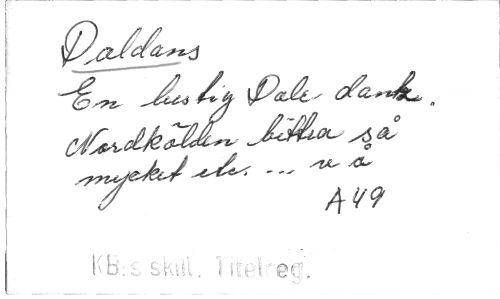 Daldans
En lustig Dale dank.
Nordkölden bittra så
mycket etc. ... v å
A 49
KB:s skill. Titelreg.